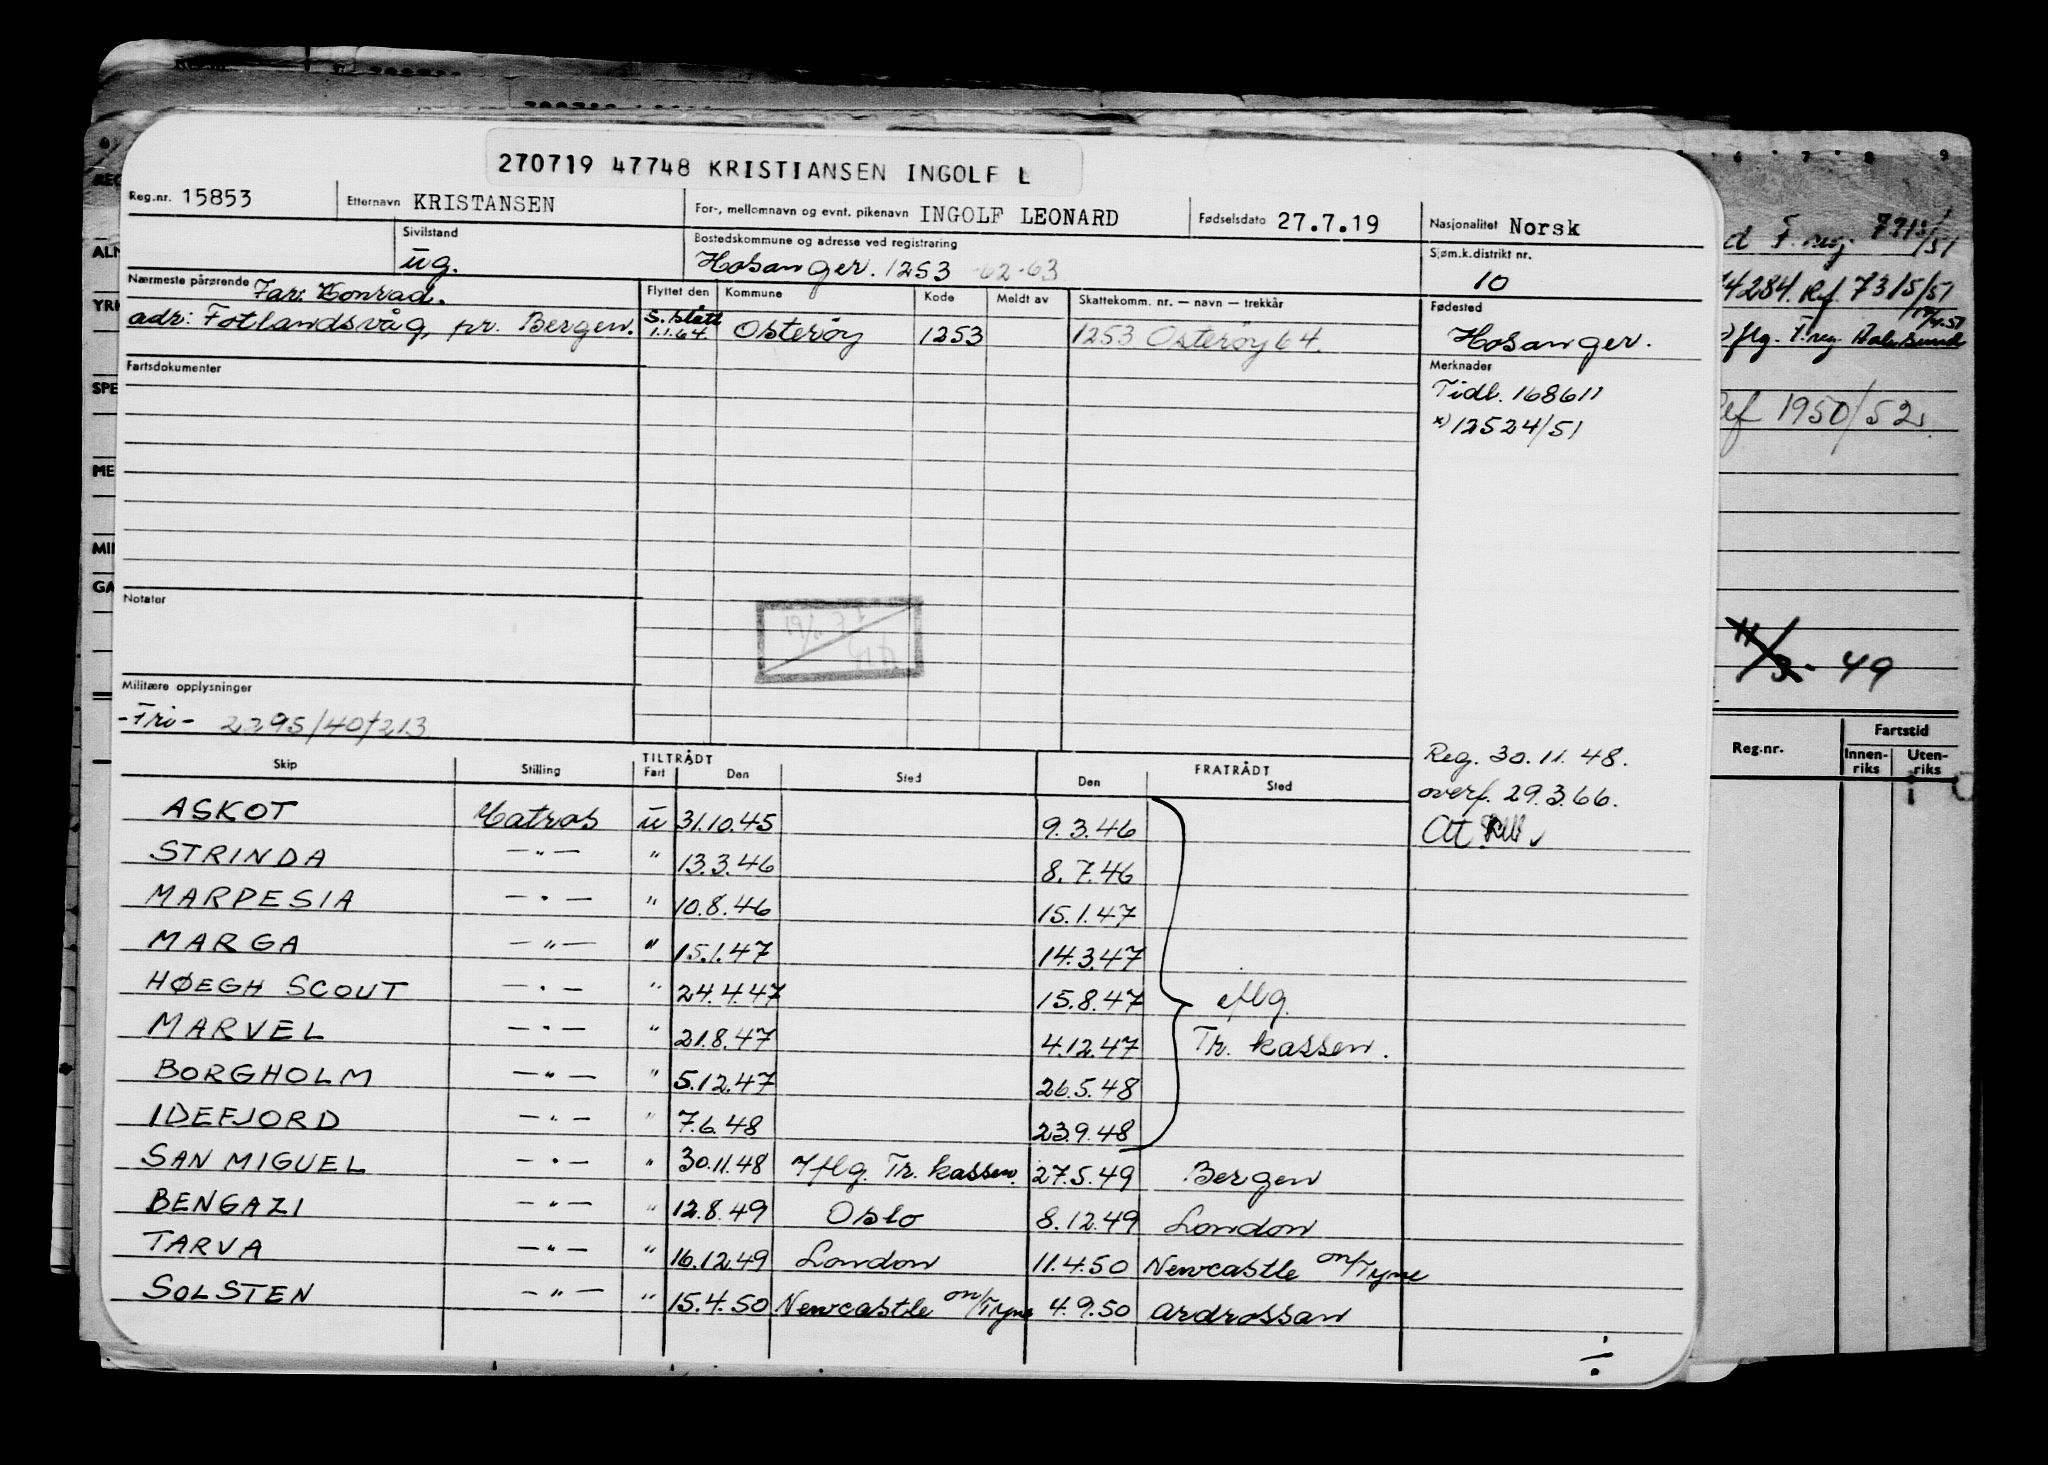 270719 47748 KRISTIANSEN INGOLF L
Reg.nr. 15853 Etternavn KRISTANSEN For-, mellomnavn og evnt. pikenavn INGOLF LEONARD Fødselsdato 27.7.19 Nasjonalitet Norsk
Sivilstand ug. Bostedskommune og adresse ved registrering Hosanger. 1253 -62-63 Sjøm.k.distrikt nr. 10
Nærmeste pårørende Far: Konrad. Flyttet den Kommune Kode Meldt av Skattekomm. nr. — navn — trekkår Fødested
adr: Fotlandsvåg, pr. Bergen. S.slått 1.1.64. Osterøy 1253 1253 Osterøy 64. Hosanger.
Fartsdokumenter Merknader
Tidl. 168611
x) 12524/51
Notater
Militære opplysninger
-Fri- 2395/40/213
Reg. 30.11.48.
overf. 29.3.66.
Att.
Skip Stilling TILTRÅDT Fart Den Sted FRATRÅDT Den Sted
ASKOT Matros u 31.10.45 9.3.46
STRINDA -"- " 13.3.46 8.7.46
MARPESIA -"- " 10.8.46 15.1.47
MARGA -"- " 15.1.47 14.3.47
HØEGH SCOUT -"- " 24.4.47 15.8.47 iflg.
MARVEL -"- " 21.8.47 4.12.47 Tr. kassen.
BORGHOLM -"- " 5.12.47 26.5.48
IDEFJORD -"- " 7.6.48 23.9.48
SAN MIGUEL -"- " 30.11.48 Iflg. Tr. kassen. 27.5.49 Bergen
BENGAZI -"- " 12.8.49 Oslo 8.12.49 London
TARVA -"- " 16.12.49 London 11.4.50 Newcastle on/Tyne
SOLSTEN -"- " 15.4.50 Newcastle on/Tyne 4.9.50 Ardrossan
6 7 8 9
d F. reg. 7915/51
74284. Ref. 7315/51
flg. F.reg. Haugesund
Ref 1950/52
11/3- 49
Reg.nr. Fartstid
Innen-riks Uten-riks
REG
ALM
YRK
SPE
ME
MIL
GA